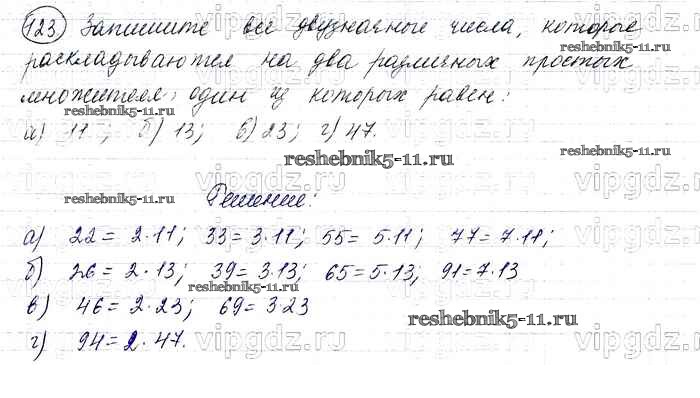 123 Запишите все двузначные числа, которые
раскладываются на два различных простых
множителя, один из которых равен:
reshebnik5-11.ru
а) 11; б) 13; в) 23; г) 47.
reshebnik5-11.ru
vipgdz.ru
reshebnik5-11.ru
Решение:
а) 22 = 2·11; 33 = 3·11; 55 = 5·11; 77 = 7·11;
б) 26 = 2·13; 39 = 3·13; 65 = 5·13; 91 = 7·13
reshebnik5-11.ru
в) 46 = 2·23; 69 = 3·23
reshebnik5-11.ru
г) 94 = 2·47.
vipgdz.ru